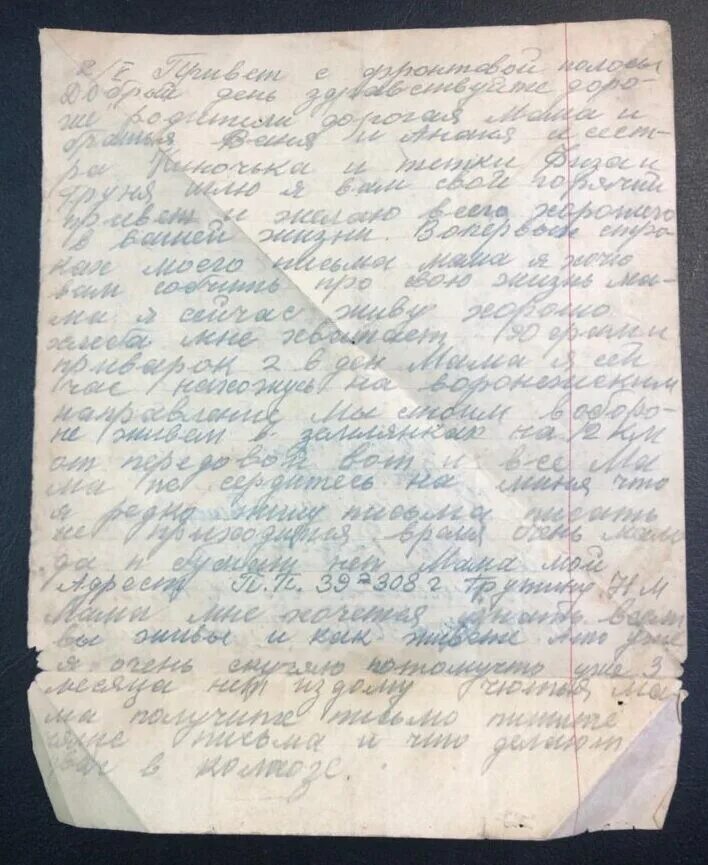 2/V Привет с фронтовой полосы
Добрый день здравствуйте доро-
гие родители дорогая мама и
братья Ваня и и сест-
ра Ниночка и тетки Лиза и
Груня шлю я вам свой горячий
привет и желаю всего хорошего
в вашей жизни. Вопервых стро-
ках моего письма мама я хочу
вам собчить про свою жизнь ма-
ма я сейчас живу хорошо
хлеба мне хватает
приварок 2 в ден Мама я сей
час нахожусь на воронежским
направление мы стоим в оборо-
не живем в землянках на 12 км
от передовой вот и все Ма
ма не сердитесь на меня что
я редко пишу письма писать
не приходится время очень мало
да и бумаги нет Мама мой
Адрест П.П. 39-308 г Н М
Мама мне хочется знать все
вы живы и как живете
я очень скучаю потомучто уже 3
месяца нет из дому Ма
ма получите письмо пишите
письма и что делают
в колхозе.